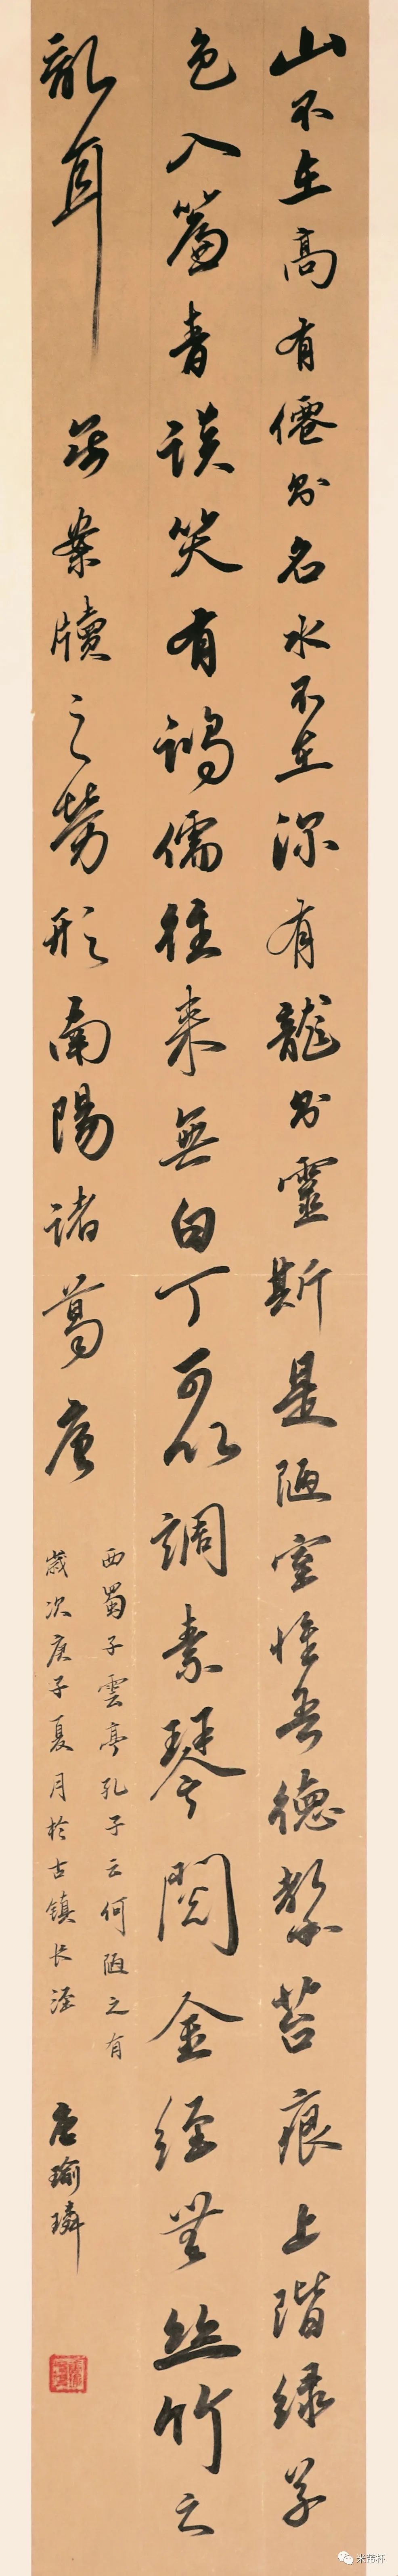 山不在高有僊則名水不在深有龍則靈斯是陋室惟吾德馨苔痕上階緑草
色入簾青談笑有鴻儒往来無白丁可以調素琴閲金經無絲竹之
亂耳無案牘之勞形南陽諸葛廬
西蜀子雲亭孔子云何陋之有
歲次庚子夏月於古镇长泾
唐瑜璘
米芾杯